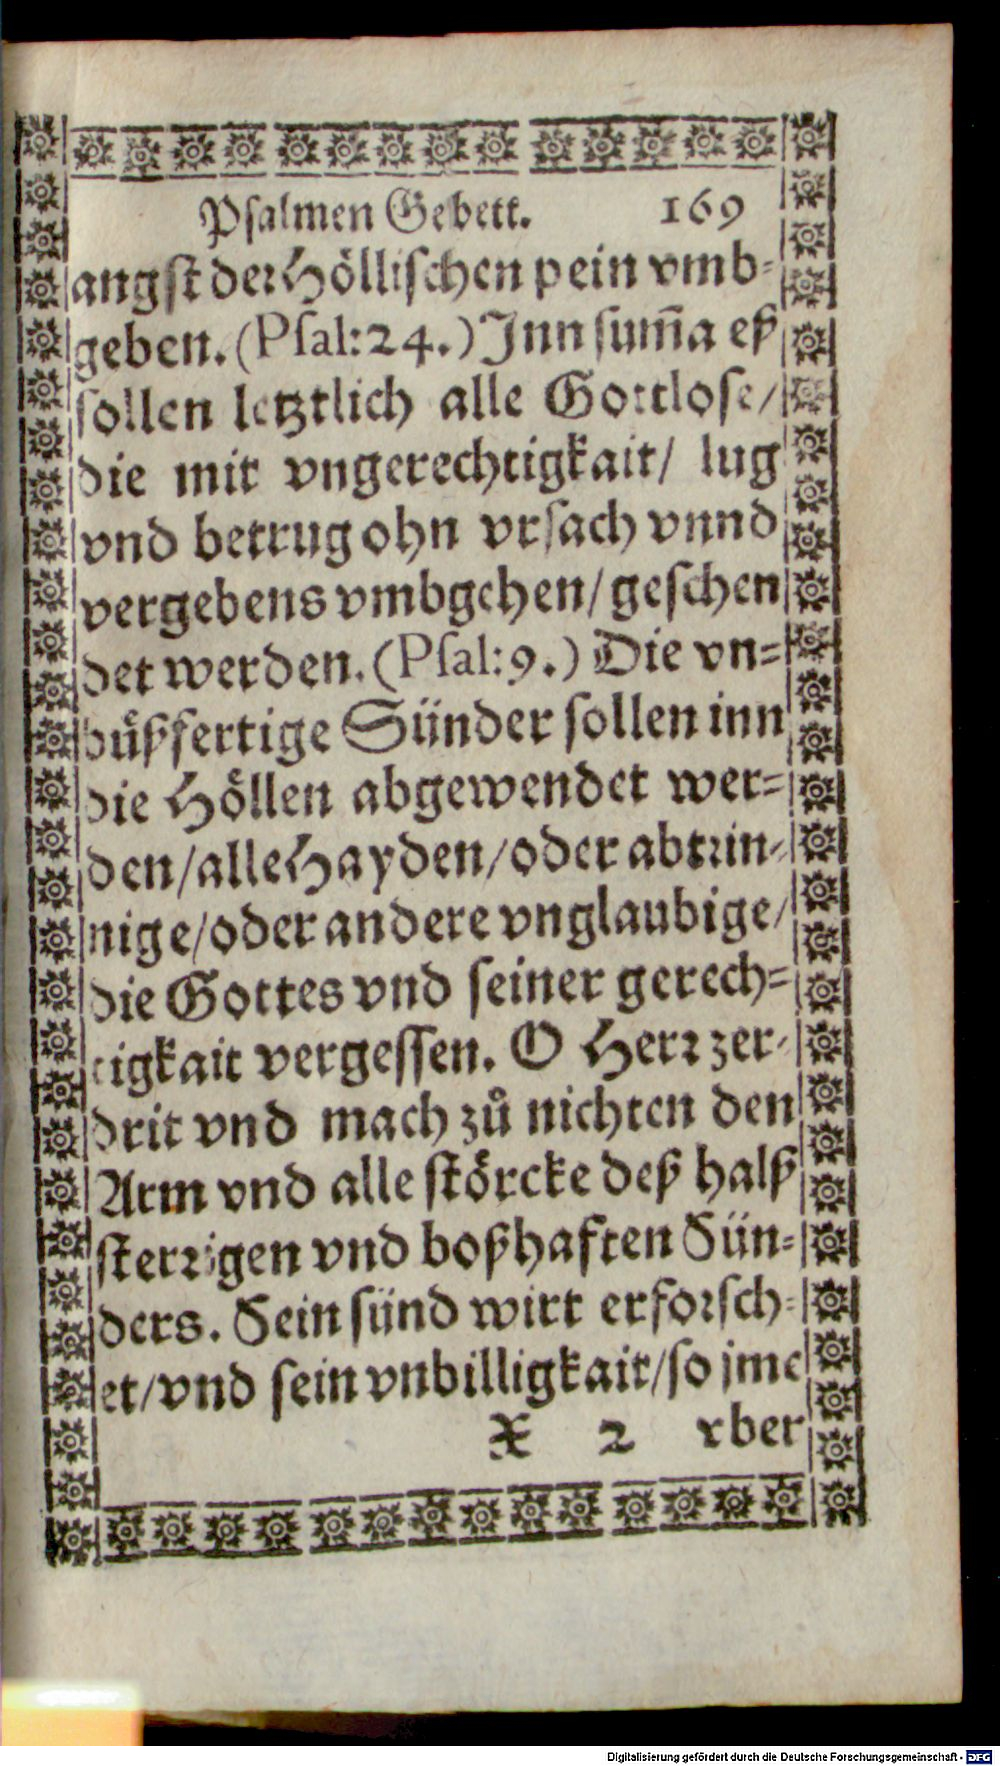 Psalmen Gebett. 169
angst der Höllischen pein vmb-
geben. (Psal: 24.) Inn sum̃a eß
sollen letztlich alle Gottlose/
die mit vngerechtigkait/ lug
vnd betrug ohn vrsach vnnd
vergebens vmbgehen/ geschen
det werden. (Psal: 9.) Die vn-
bůßfertige Sünder sollen inn
die Höllen abgewendet wer-
den/ alle Hayden/ oder abtrin-
nige/ oder andere vnglaubige/
die Gottes vnd seiner gerech-
tigkait vergessen. O Herr zer-
drit vnd mach zů nichten den
Arm vnd alle störcke deß halß
sterrigen vnd boßhafften Sün-
ders. Sein sünd wirt erforsch-
et/ vnd sein vnbilligkait/ so jme
X 2 vber
Digitalisierung gefördert durch die Deutsche Forschungsgemeinschaft - DFG